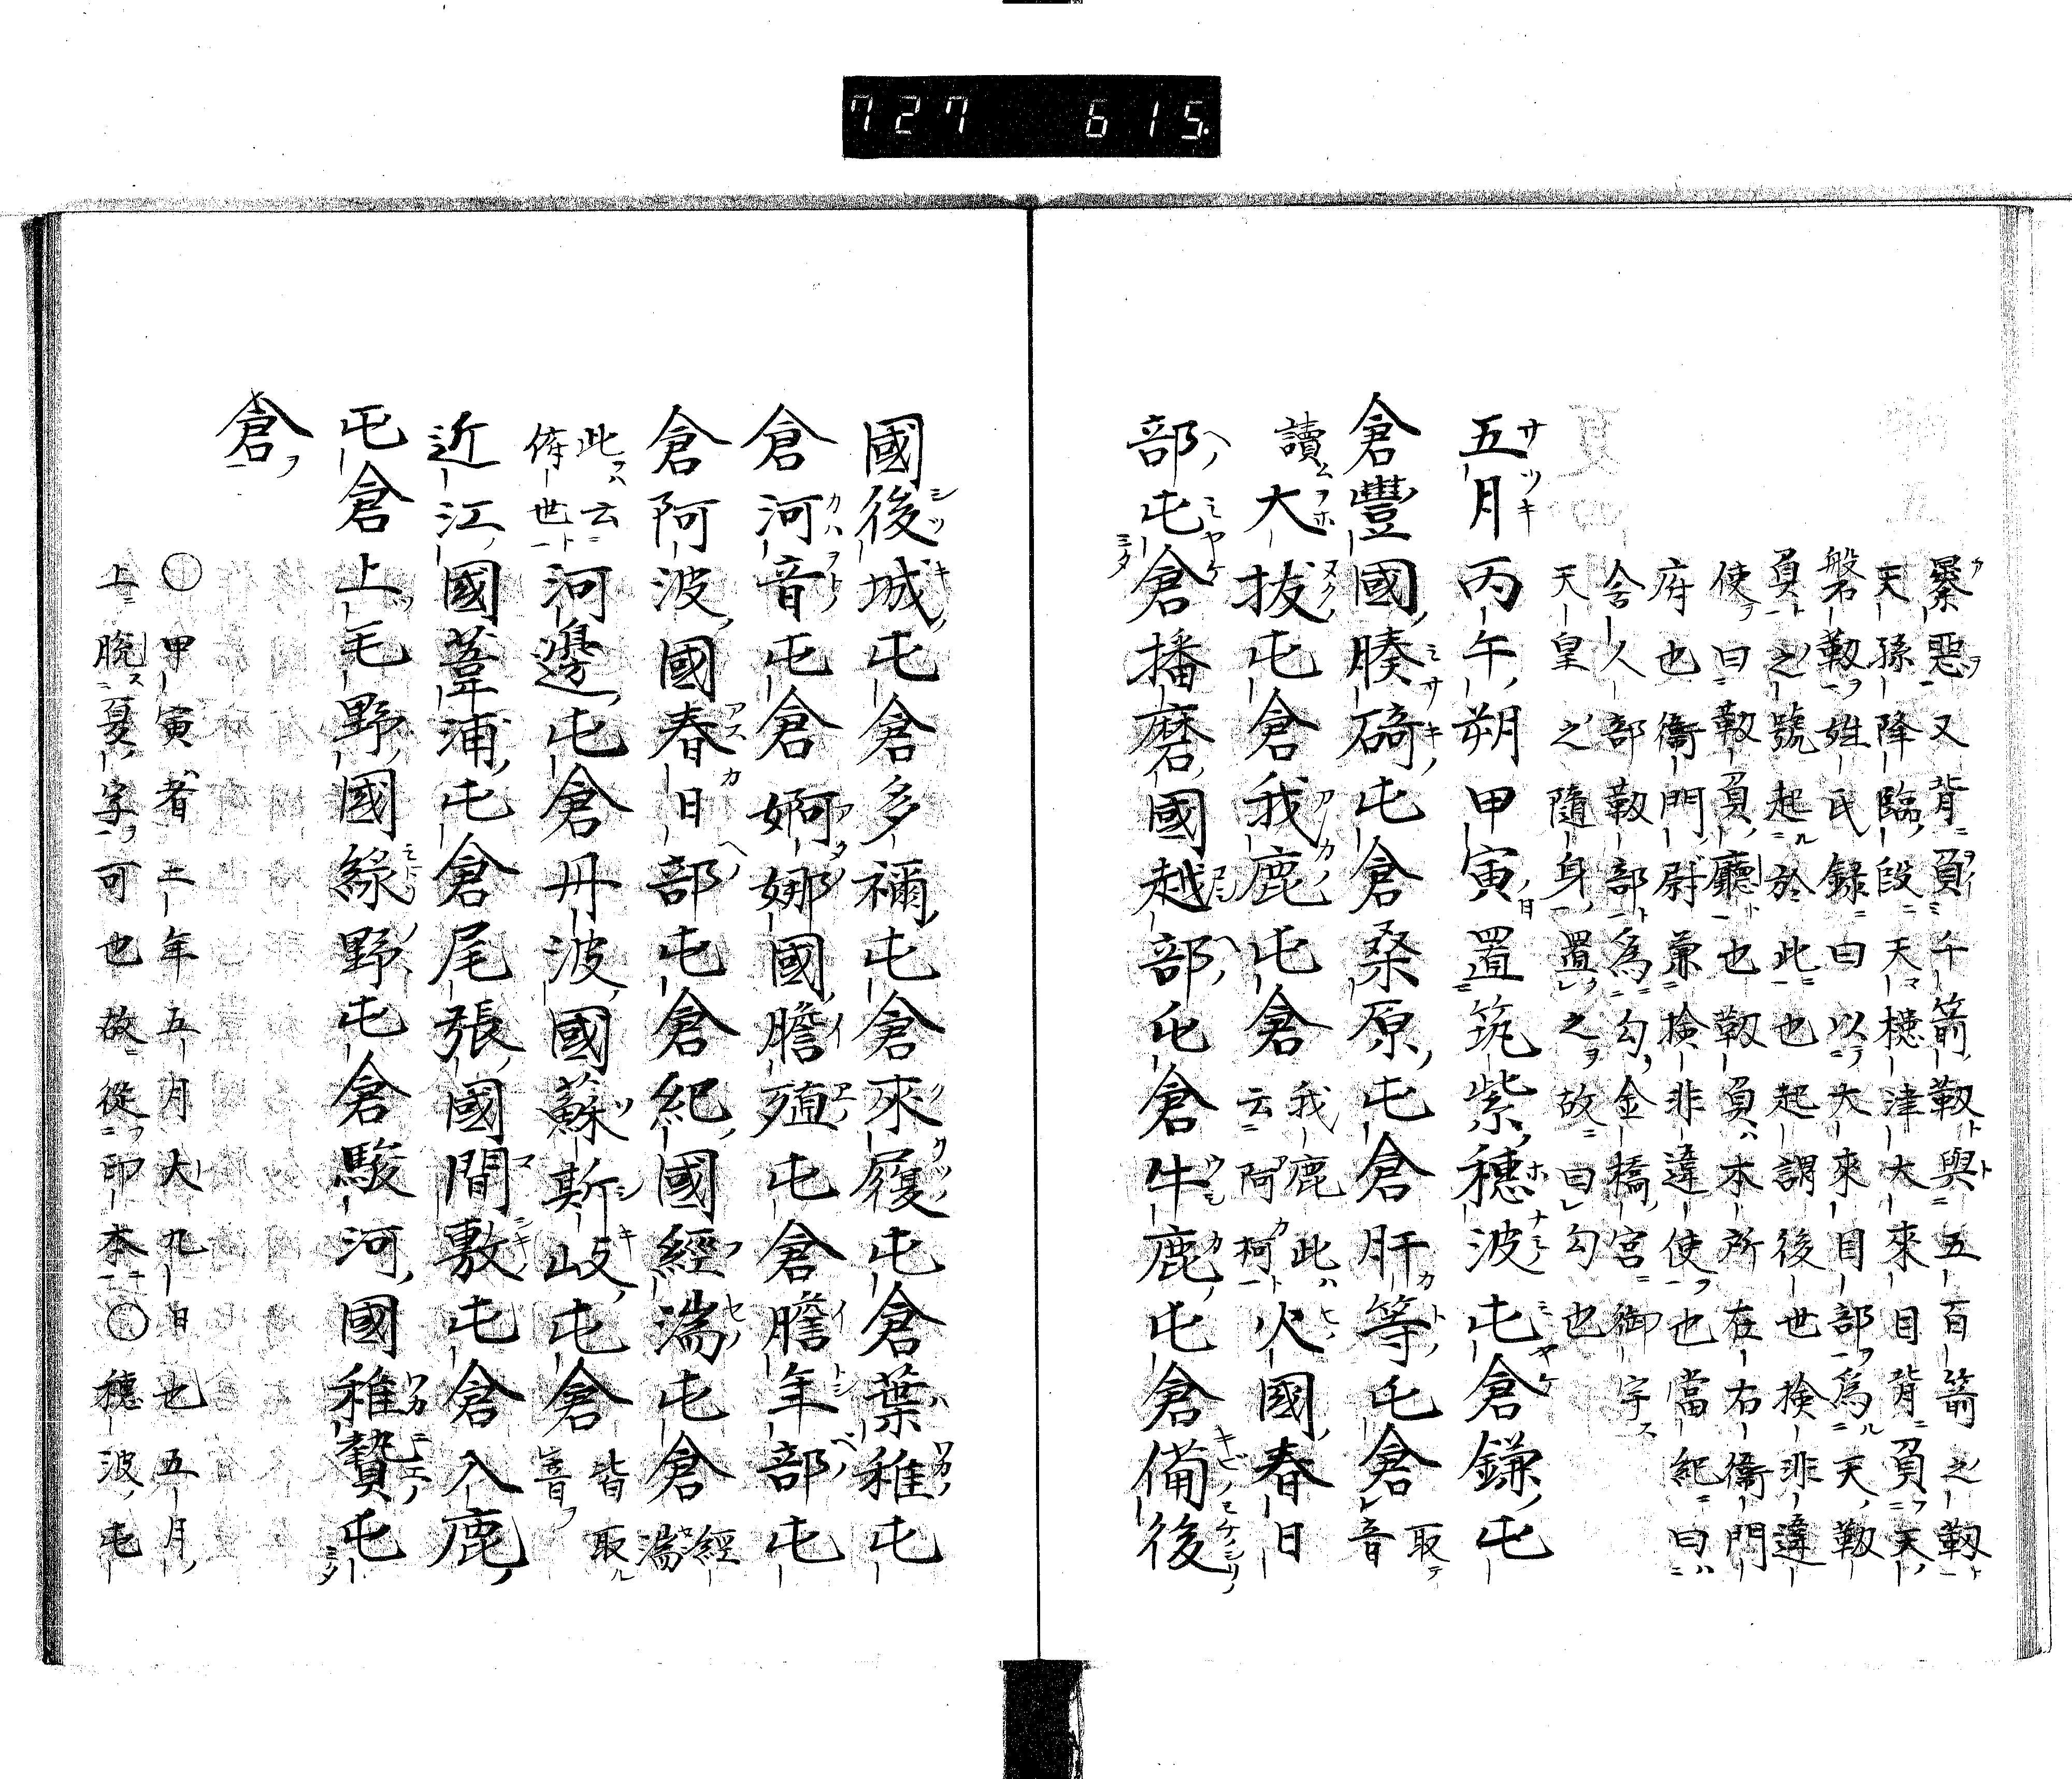 727 615.
纍惡又背負千箭靱與五百箭之靱
天孫降臨段天槵津大來目背負天
磐靱姓氏錄曰以大來目部爲天靱
負之號起於此也起謂後世検非違
使曰靱負廳也靱負本所在右衞門
府也衞門尉兼検非違使也當紀曰
舍人部靱部爲勾金橋宮御宇
天皇之隨身置之故曰勾也
五月丙午朔甲寅置筑紫穗波屯倉鎌屯
倉豐國䐁碕屯倉桑原屯倉肝等屯倉取音
讀大拔屯倉我鹿屯倉我鹿此云阿柯火國春日
部屯倉播磨國越部屯倉牛鹿屯倉備後
國後城屯倉多禰屯倉來履屯倉葉稚屯
倉河音屯倉婀娜國膽殖屯倉膽年部屯
倉阿波國春日部屯倉紀國經湍屯倉經湍
此云俯世河邊屯倉丹波國蘇斯岐屯倉皆取音
近江國葦浦屯倉尾張國間敷屯倉入鹿
屯倉上毛野國緑野屯倉駿河國稚贄屯
倉
○甲寅者二年五月大九日也五月
上脱夏字可也故從印本○穗波屯